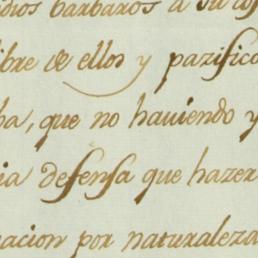 dios barbaros a su cos
ibre de ellos y pazifico
ba, que no haviendo y
ia defensa que hazer
nacion por naturaleza